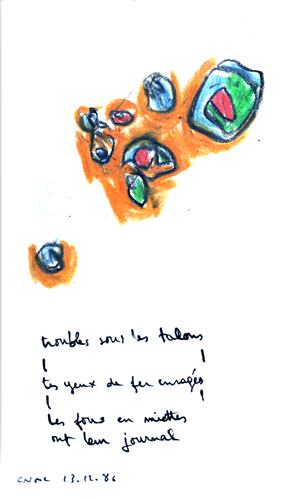 troubles sous les talons
tes yeux de fer enragés
les fous en miettes
ont leur journal
13.12.86